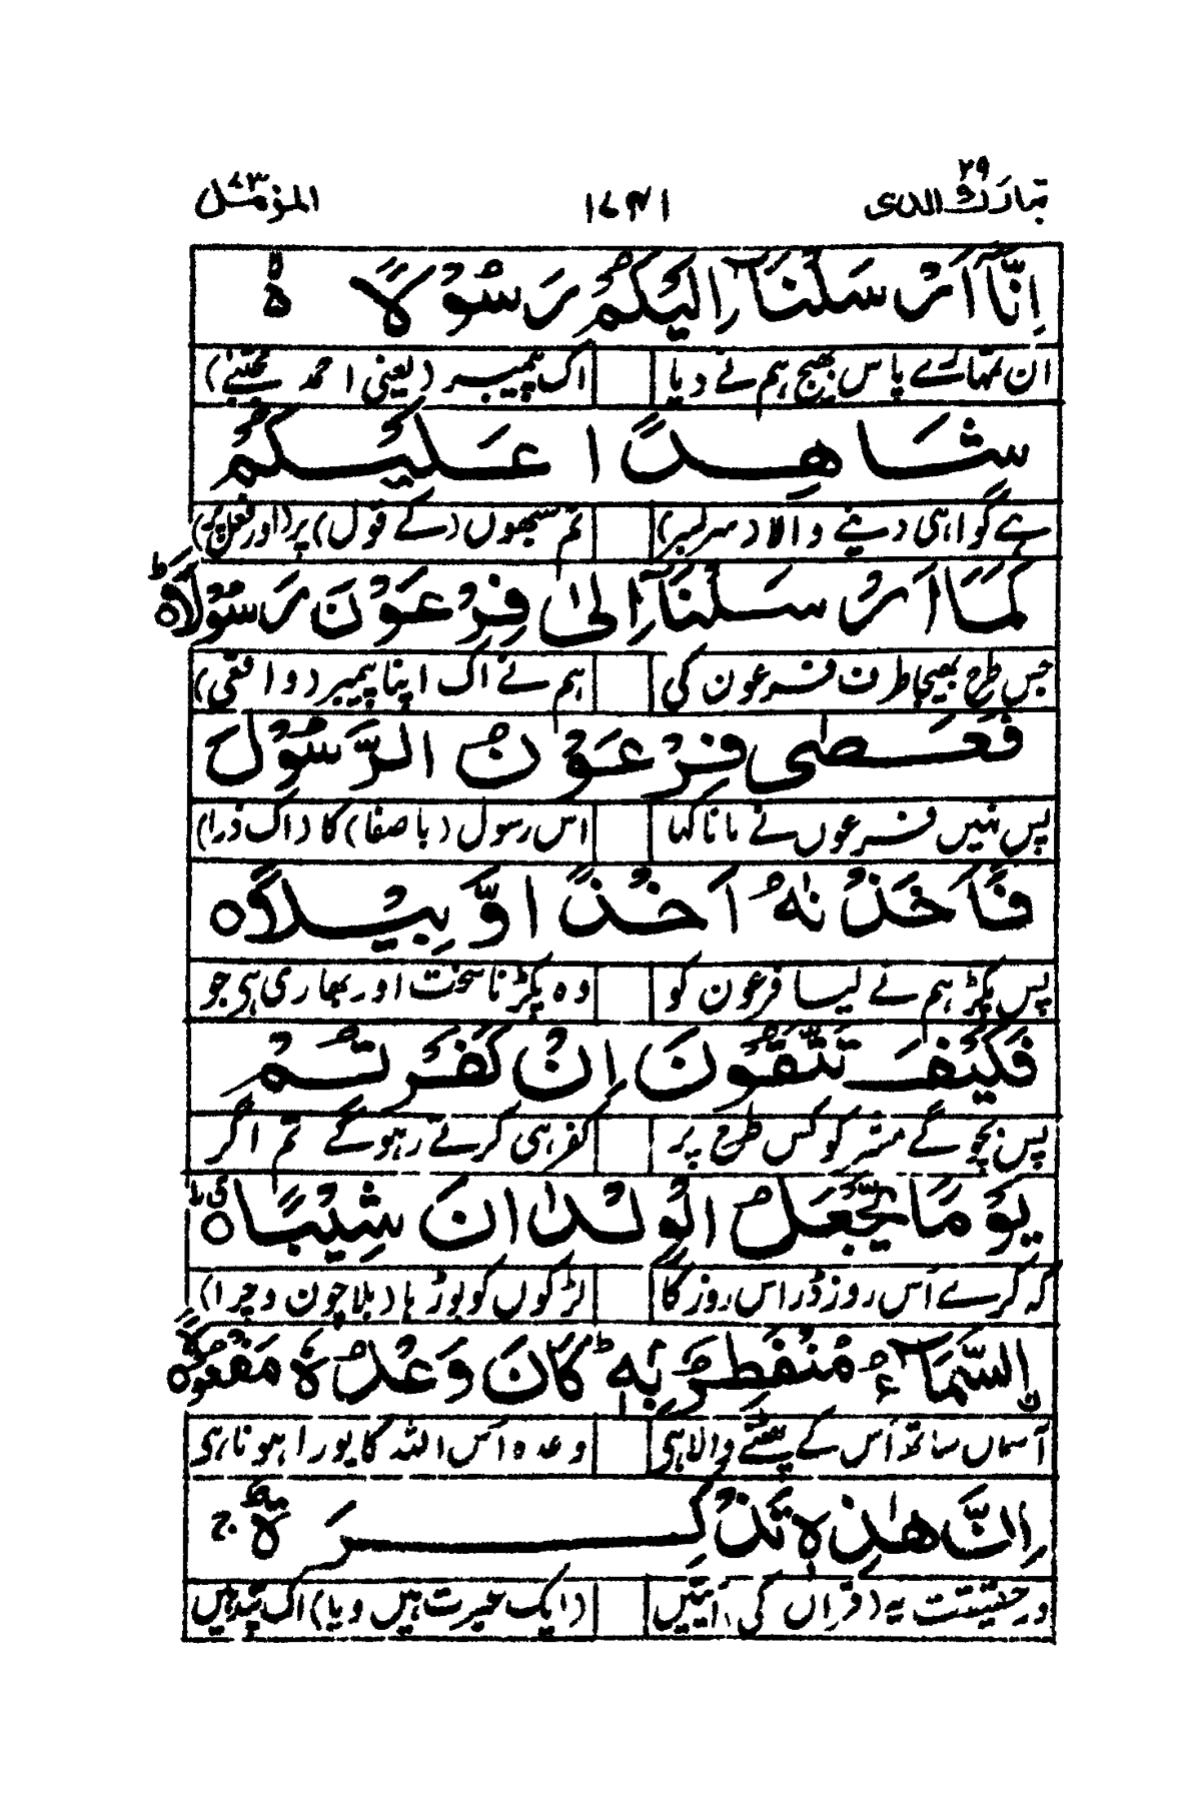 تبارك الذى ٢٩ ١٦٣١ المزمل ٧٣
اِنَّآ اَرْسَلْنَآ اِلَيْكُمْ رَسُوْلًا ۙ
ان تمہارے پاس بھیج ہم نے دیا اک پیمبر (یعنی احمد مجتبےٰ)
شَاهِدًا عَلَيْكُمْ
ہے گواہی دینے والا (سر بسر) تم سبھوں (کے قول) پر (اور فعل پر)
كَمَآ اَرْسَلْنَآ اِلٰى فِرْعَوْنَ رَسُوْلًا ؕ
جس طرح بھیجا طرف فرعون کی ہم نے اک اپنا پیمبر (واقعی)
فَعَصٰى فِرْعَوْنُ الرَّسُوْلَ
پس نہیں فرعوں نے مانا کہا اس رسول (باصفا) کا (اک ذرا)
فَاَخَذْنٰهُ اَخْذًا وَّبِيْلًا ○
پس پکڑ ہم نے لیا فرعون کو وہ پکڑنا سخت اور بھاری ہی جو
فَكَيْفَ تَتَّقُوْنَ اِنْ كَفَرْتُمْ
پس بچو گے کس طرح پر کفر ہی کرتے رہو گے تم اگر
يَوْمًا يَّجْعَلُ الْوِلْدَانَ شِيْبًا ○
کہ کرے اس روز ڈر اس روز کا لڑکوں کو بوڑہا (بلا چون و چرا)
اِۨلسَّمَآءُ مُنْفَطِرٌۢ بِهٖ ؕ كَانَ وَعْدُهٗ مَفْعُوْلًا ○
آسماں ساتھ اس کے پھٹنے والا ہی وعدہ اس اللہ کا پورا ہونا ہی
اِنَّ هٰذِهٖ تَذْكِرَةٌ ۚ
در حقیقت یہ (قرآں کی) آیتیں (ایک عبرت ہیں و یا) اک پند ہیں